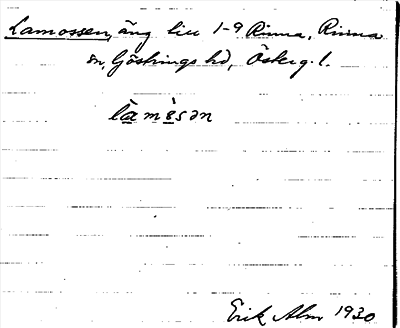 Lamossen, äng till 1-9 Rinna, Rinna
sn, Göstrings hd, Österg. l.
làmòsən
Erik Alm 1930